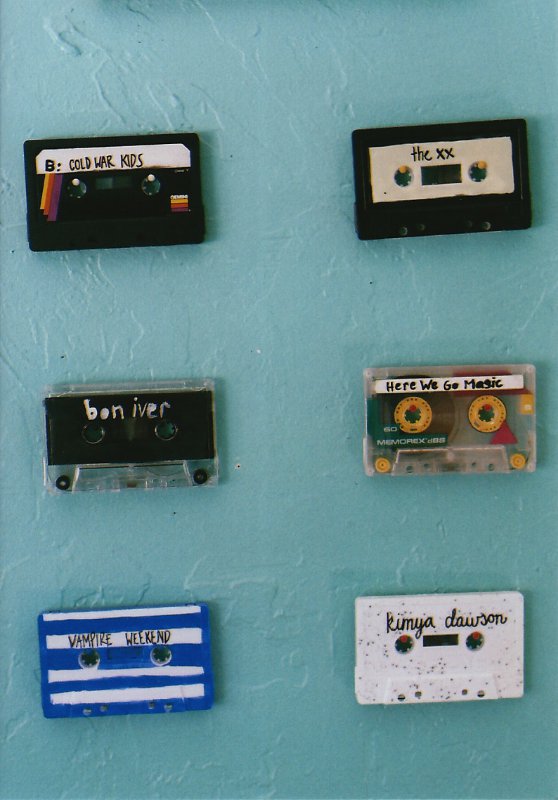 B: COLD WAR KIDS
the xx
bon iver
Here We Go Magic
60
MEMOREX dBS
VAMPIRE WEEKEND
kimya dawson